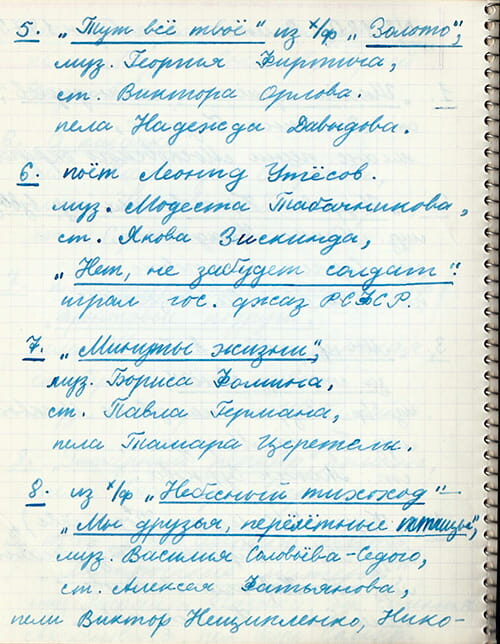 5. „Тут всё твоё" из х/ф „Золото",
муз. Георгия Фиртича,
ст. Виктора Орлова.
пела Надежда Давыдова.
6. поёт Леонид Утёсов.
муз. Модеста Табачникова,
ст. Якова Зискинда,
„Нет, не забудет солдат".
играл гос. джаз РСФСР.
7. „Минуты жизни",
муз. Бориса Фомина,
ст. Павла Германа,
пела Тамара Церетели.
8. из х/ф „Небесный тихоход" –
„Мы друзья, перелётные птицы",
муз. Василия Соловьёва-Седого,
ст. Алексея Фатьянова,
пели Виктор Нещипленко, Нико-